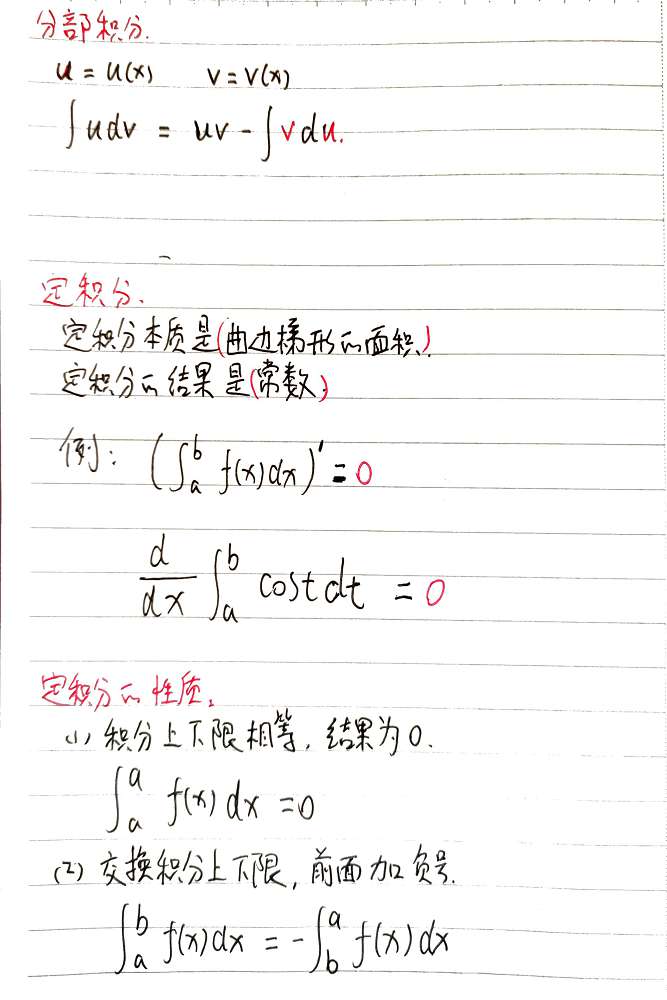 分部积分.
u = u(x)  v = v(x)
∫udv = uv - ∫vdu.
定积分.
定积分本质是(曲边梯形的面积)
定积分的结果是(常数)
例: (∫ₐᵇ f(x)dx)' = 0
d/dx ∫ₐᵇ cost dt = 0
定积分的性质.
(1) 积分上下限相等, 结果为0.
∫ₐᵃ f(x) dx = 0
(2) 交换积分上下限, 前面加负号.
∫ₐᵇ f(x)dx = -∫_b^a f(x)dx